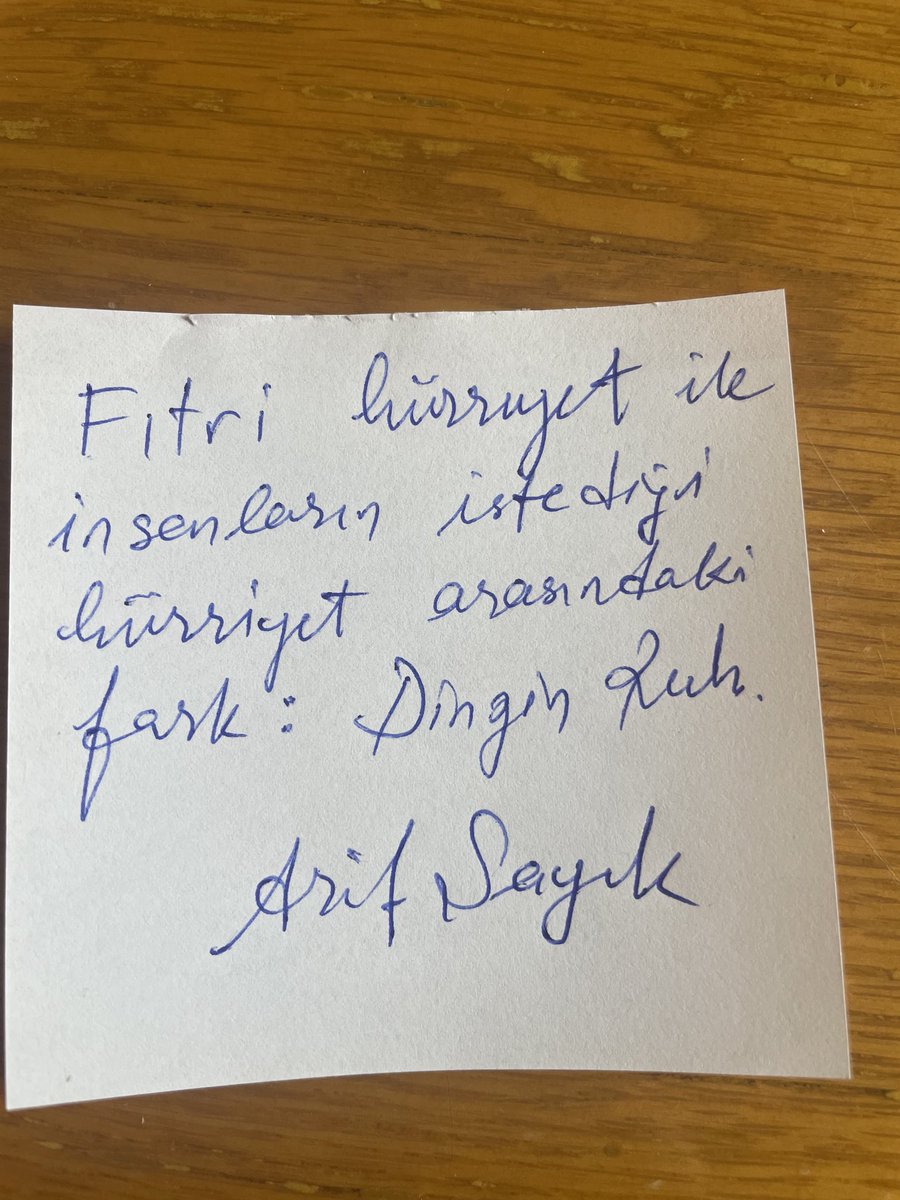 Fıtri hürriyet ile
insanların istediği
hürriyet arasındaki
fark: Dingin Ruh.
Arif Sayık